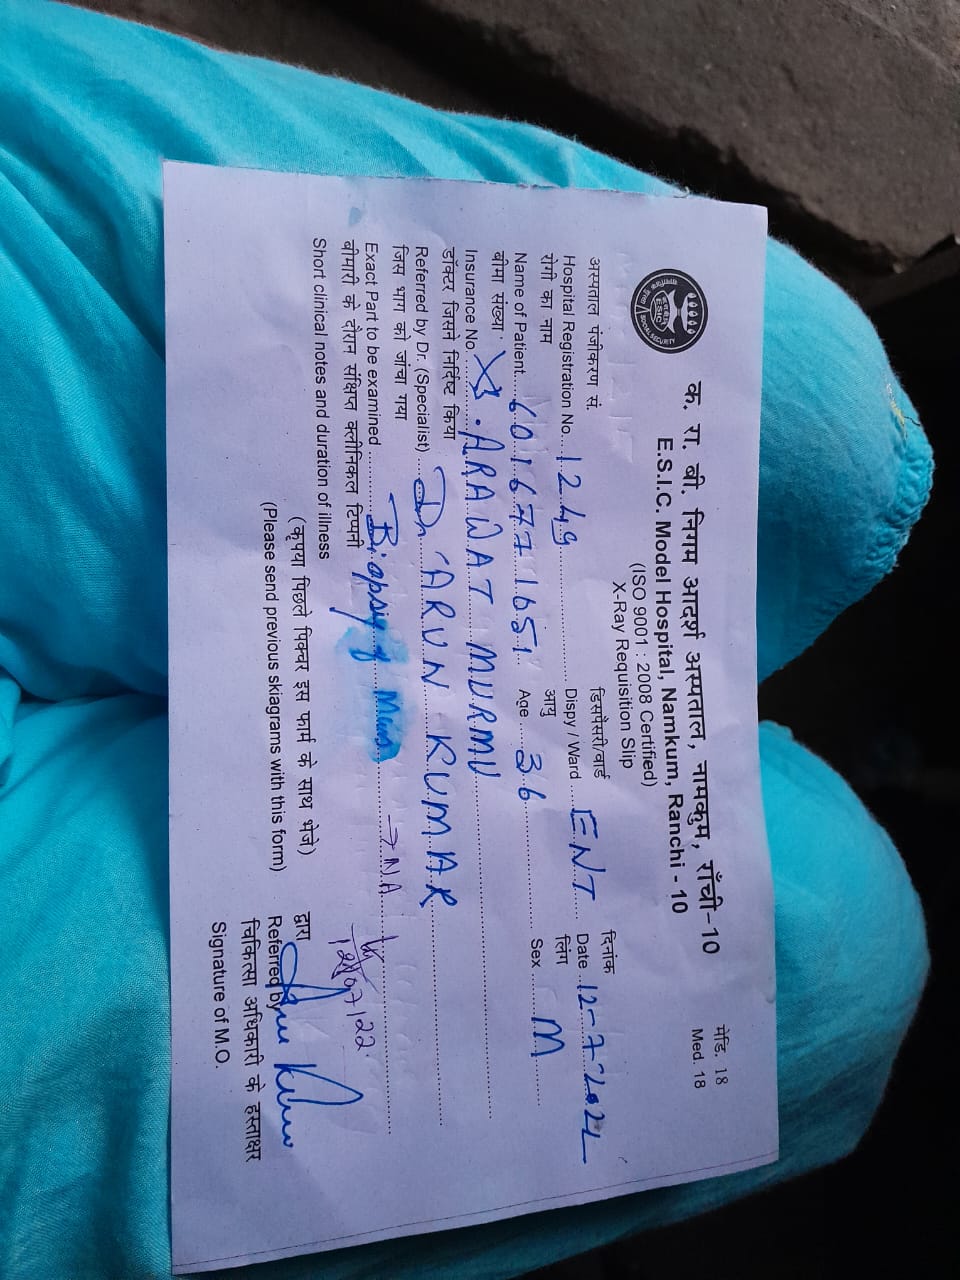 मेडि. 18
Med. 18
क. रा. बी. निगम आदर्श अस्पताल, नामकुम, राँची-10
E.S.I.C. Model Hospital, Namkum, Ranchi - 10
(ISO 9001 : 2008 Certified)
X-Ray Requisition Slip
ESIC
SOCIAL SECURITY
अस्पताल पंजीकरण सं. डिसपैंसरी/वार्ड दिनांक
Hospital Registration No. 1249 Dispy / Ward ENT Date 12-7-2022
रोगी का नाम आयु लिंग
Name of Patient 6016771651 Age 36 Sex M
बीमा संख्या
Insurance No. ARAWAT MURMU
डॉक्टर जिसने निर्दिष्ट किया
Referred by Dr. (Specialist) Dr. ARUN KUMAR
जिस भाग को जांचा गया
Exact Part to be examined Biopsy of → NA
बीमारी के दौरान संक्षिप्त क्लीनिकल टिप्पनी 12/07/22
Short clinical notes and duration of illness
(कृपया पिछले पिक्चर इस फार्म के साथ भेजे) द्वारा
(Please send previous skiagrams with this form) Referred by
चिकित्सा अधिकारी के हस्ताक्षर
Signature of M.O.